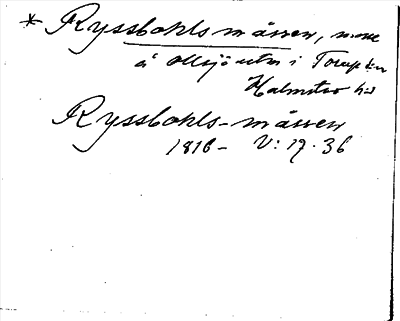 * Ryssbohlsmåsen, mosse
å Ollsjö utm i Torup sn
Halmstad hd
Ryssbohls-måsen
1816 - V: 19. 36